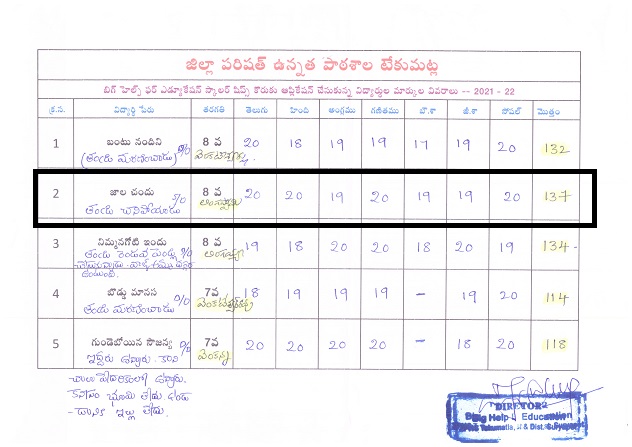 జిల్లా పరిషత్ ఉన్నత పాఠశాల టేకుమట్ల
బిగ్ హెల్ప్ ఫర్ ఎడ్యుకేషన్ స్కాలర్ షిప్స్ కొరకు అప్లికేషన్ చేసుకున్న విద్యార్థుల మార్కుల వివరాలు -- 2021 - 22
క్ర.స. విద్యార్థి పేరు తరగతి తెలుగు హింది ఆంగ్లము గణితము బౌ.శా జీ.శా సోషల్ మొత్తం
1 బంటు నందిని 8 వ 20 18 19 19 17 19 20 132
(తండ్రి మరణించాడు)
2 జాల చందు S/o 8 వ 20 20 19 20 19 19 20 137
తండ్రి చనిపోయాడు
3 నిమ్మనగోటి ఇందు 8 వ 19 18 20 20 18 20 19 134
4 బొడ్డు మానస 7వ 18 19 19 19 - 19 20 114
తండ్రి మరణించాడు
5 గుండెబోయిన సౌజన్య 7వ 20 20 20 20 - 20 18 118
ఇద్దరు ఉన్నారు. కాని
చాలా పేదరికంలో ఉన్నారు.
DIRETOR
Big Help Education